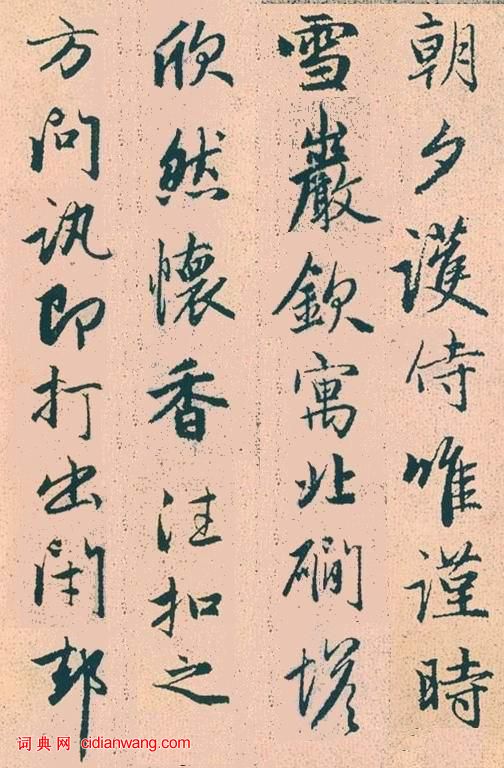 朝夕護侍唯謹時
雪巖欽寓北磵塔
欣然懷香往扣之
方問訊即打出閉却
词典网:cidianwang.com